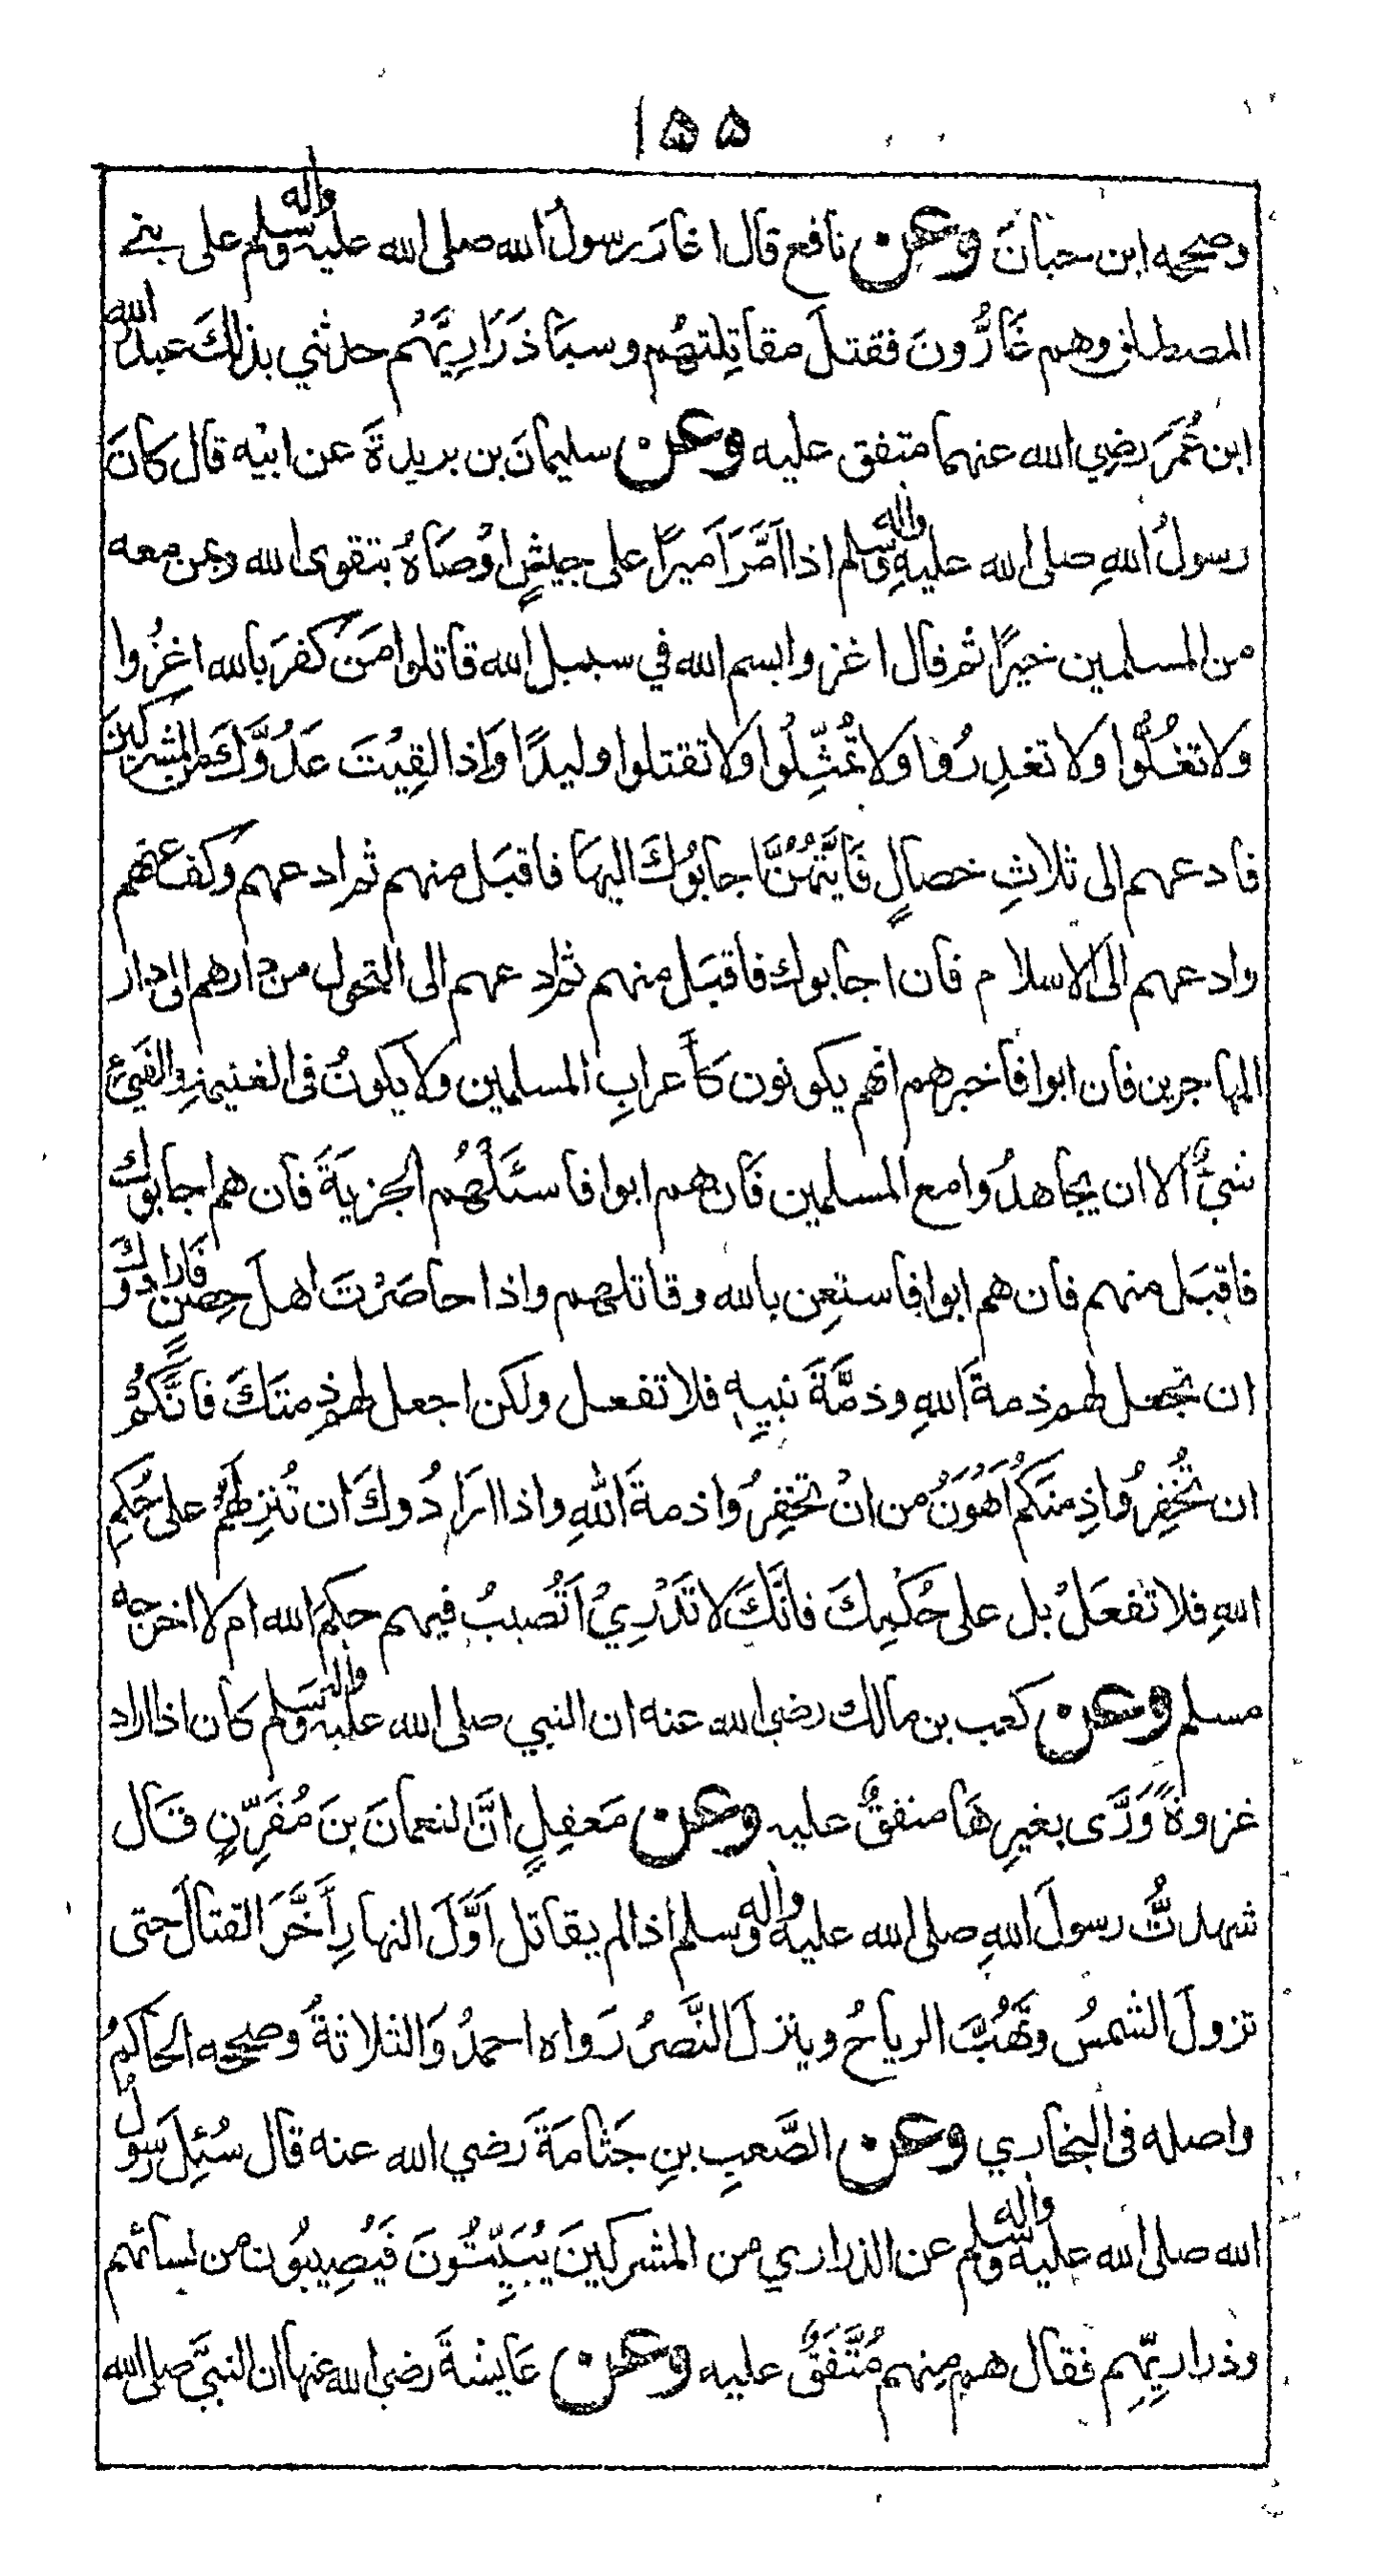 ١٥٥
وصححه ابن حبانَ وعن نافع قال اغارَ رسولُ الله صلى الله عليه واله وسلم على بني
المصطلق وهم غَارُّونَ فقتلَ مقاتِلتهُم وسبَا ذَرَارِيَّهُم حدثني بذلكَ عبدُ الله
ابن عُمَرَ رضِي الله عنهما متفق عليه وعن سليمانَ بن بريدةَ عن ابيْه قال كانَ
رسولُ اللهِ صلى الله عليهِ واله وسلم اذا اَمَّرَ اَميرًا على جيشٍ اوْصَاهُ بتقوى الله وبمن معه
من المسلمين خيرًا ثم قال اغزوا بسم الله في سبيل الله قاتلوا مَن كفرَ بالله اغزُوا
وَلا تغُلُّوا وَلا تغدِرُوا وَلا تُمَثِّلُوا وَلا تقتلوا وليدًا وَاِذا لقِيْتَ عَدُوَّكَ من المشركينَ
فادعهم الى ثلاثِ خصالٍ فَاَيَّتُهُنَّ اجابُوكَ اليهَا فاقبَل منهم ثم ادعهم وكف عنهم
وادعهم الى الاسلام فان اجابوك فاقبَل منهم ثم ادعهم الى التحول من دارهم الى دار
المهاجرين فان ابوا فاخبرهم انهم يكونون كأعرابِ المسلمين ولا يكونُ فى الغنيمة والفَيْئِ
شيْءٌ الا ان يجاهدُوا مع المسلمين فَان هم ابوا فاسئَلْهُم الجزيةَ فان هم اجابوك
فاقبَل منهم فان هم ابوا فاستعِن بالله وقاتلهم واذا حاصَرْتَ اهلَ حِصنٍ فَارادوكَ
ان تجعل لهم ذمةَ اللهِ وذمَّةَ نبيهِ فلا تفعل ولكن اجعل لهم ذِمتَكَ فانَّكُمْ
ان تُخْفِرُوا ذِمتَكُم اَهوَنُ من انْ تخفِرُوا ذمةَ اللهِ واذا ارَادُوكَ ان تُنْزِلَهُمْ على حُكمِ
اللهِ فلا تفعَلْ بل على حُكْمِكَ فانَّكَ لا تَدْرِيْ اَتُصيبُ فيهم حكمَ الله ام لا اخرجه
مسلم وعن كعب بن مالك رضي الله عنه ان النبي صلى الله عليه واله وسلم كان اذا اراد
غزوةً وَرَّى بغيرِهَا متفقٌ عليه وعن مَعقِلٍ انَّ النعمانَ بنَ مُقَرِّنٍ قال
شهدتُّ رسولَ اللهِ صلى الله عليه واله وسلم اذا لم يقاتل اَوَّلَ النهارِ أَخَّرَ القتالَ حتى
تزولَ الشمسُ وتَهُبَّ الرياحُ وينزلَ النَّصرُ رَواه احمدُ وَالثلاثةُ وصححه الحاكمُ
واصله فى البخاري وعن الصَّعبِ بنِ جَثامَةَ رَضي الله عنه قال سُئِلَ رسولُ
الله صلى الله عليه واله وسلم عن الذراري من المشركينَ يُبَيِّتُونَ فَيُصِيبُون من نسائهم
وذراريِّهِم فقال هم مِنهم مُتَّفَقٌ عليه وعن عَايشةَ رضي الله عنها ان النبيَّ صلى الله